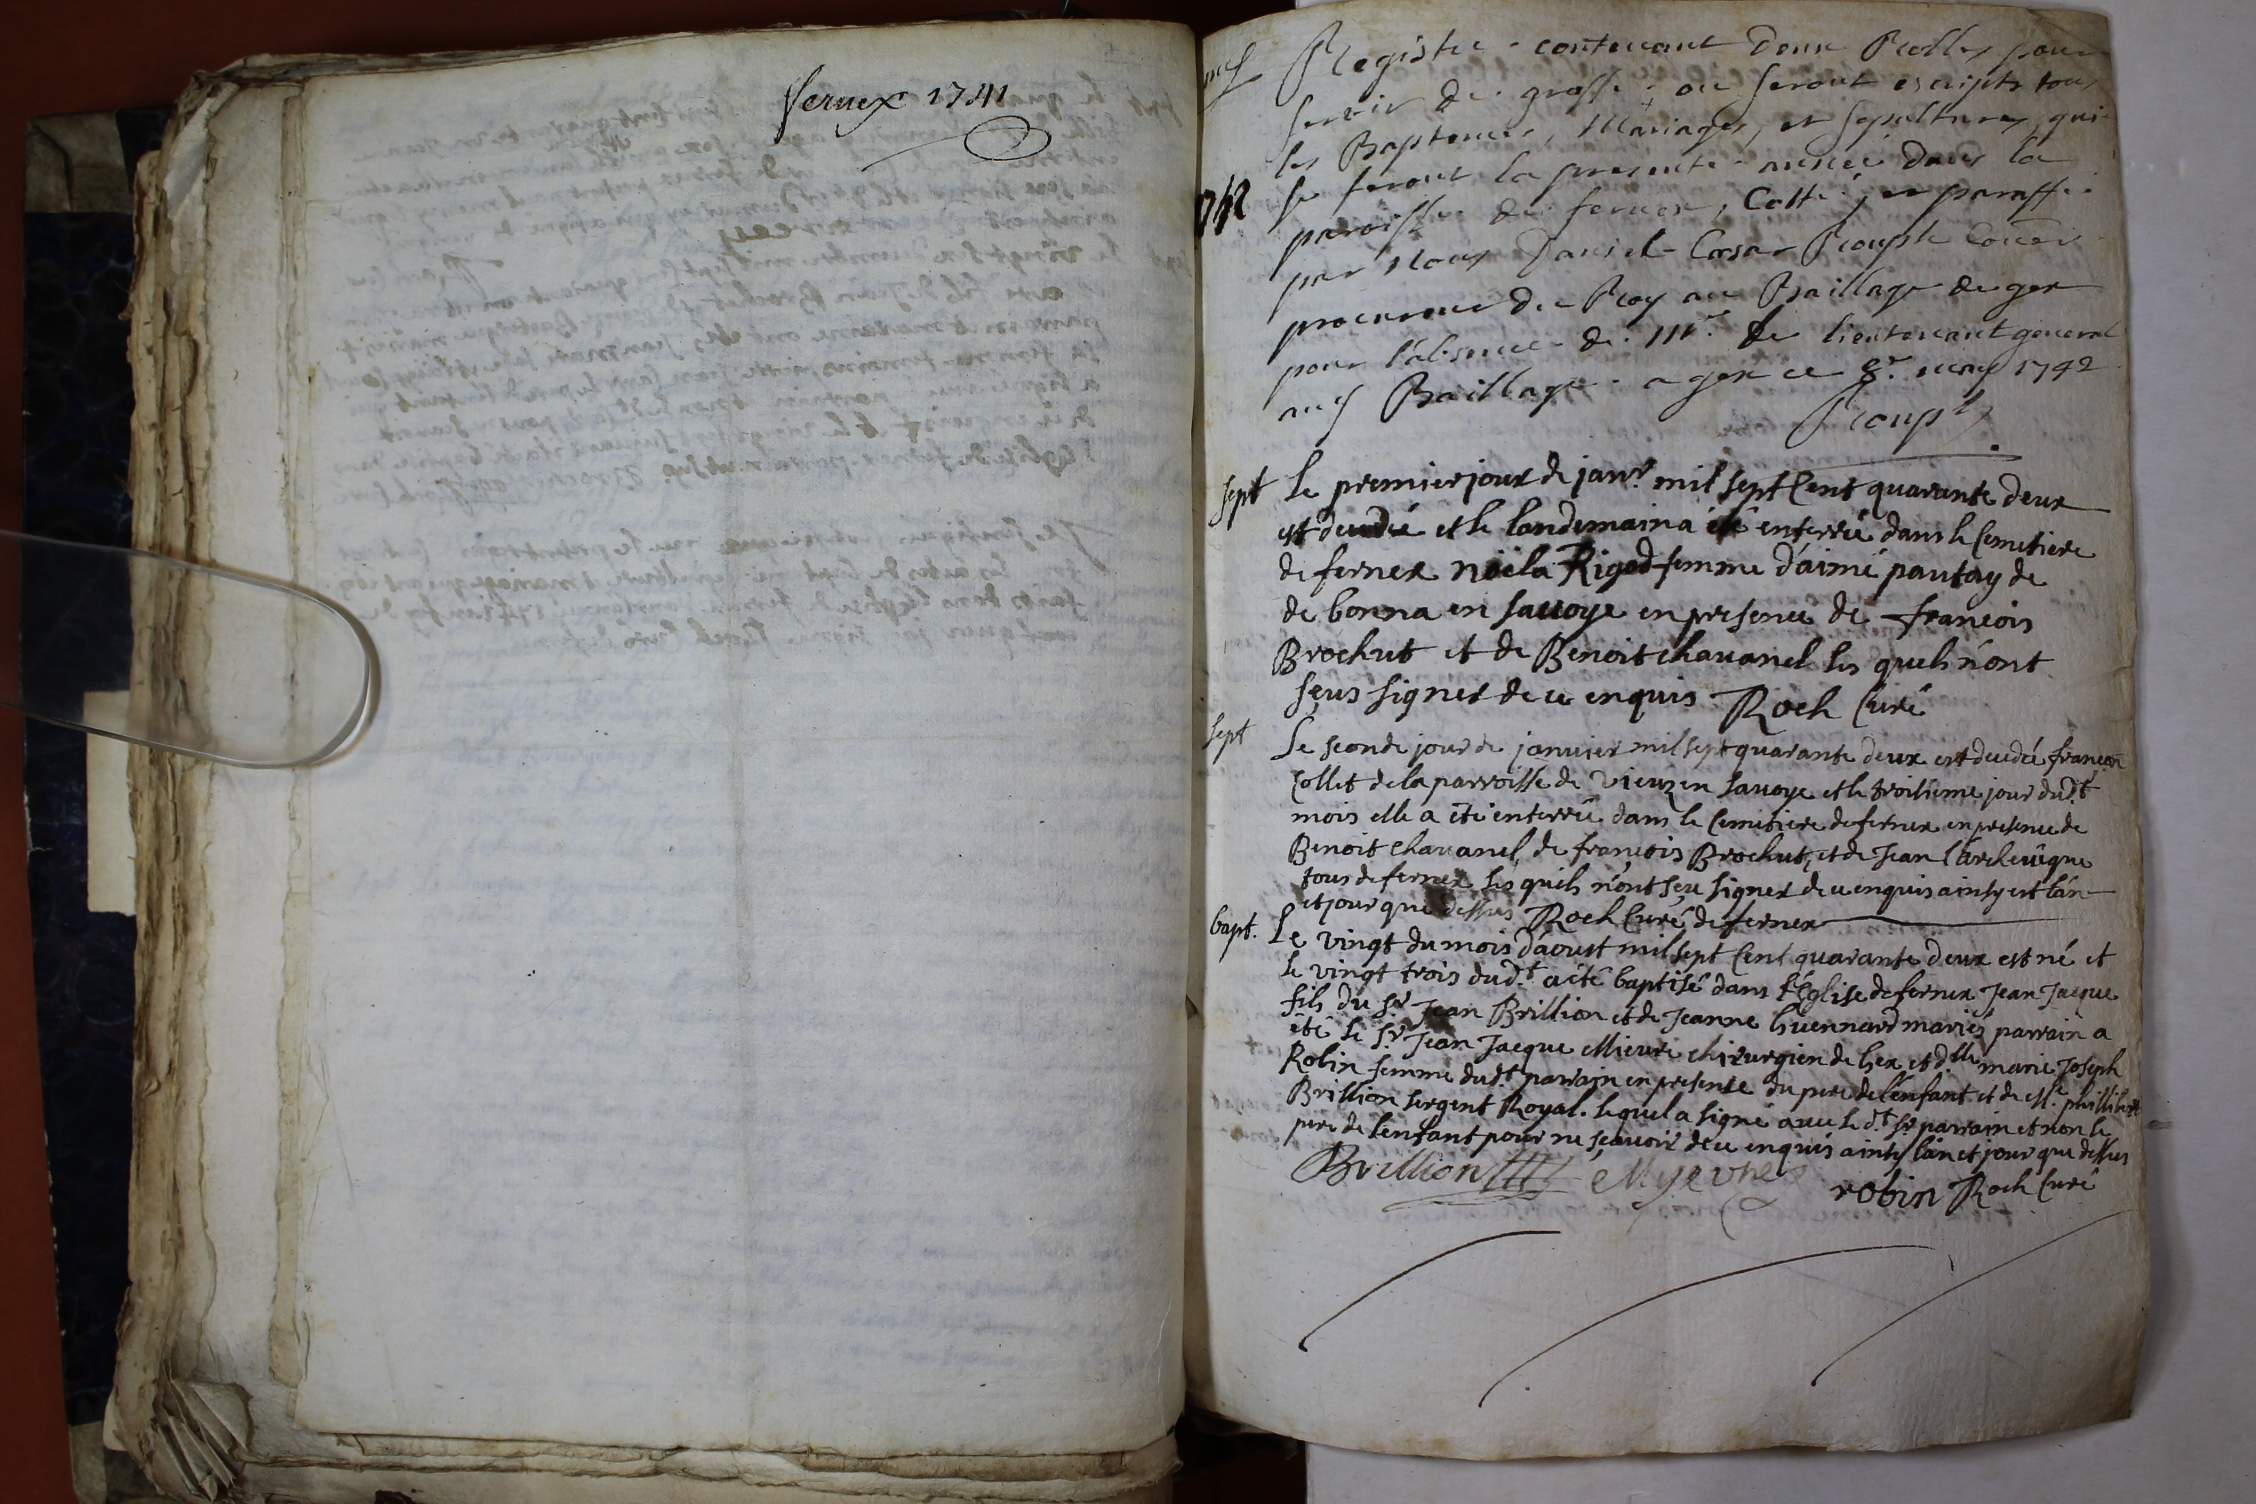 fernex 1741
Registre contenant deux Rolles pour
servir de grosse, ou seront escripts tous
les Baptemes, Mariages, et sepultures qui
se feront la presente année dans la
1742
paroisse de fernex, Cotté, et paraffé
par Nous Daniel Cesar Rouph
procureur du Roy au Baillage de gex
pour l'absence de Mr. le lieutenant general
aud Baillage a gex ce may 1742
Rouph
sept Le premier jour de janr. mil sept Cent quarante deux
est decedée et le landemain a été enterrée dans le Cemetiere
de fernex noëla Rigod femme d'aimé pautay de
de bonna en savoye en presence de francois
Brochut et de Benoit chavanel les quels n'ont
sçus signer de ce enquis Roch Curé
sept Le seconde jour de janvier mil sept quarante deux est decedée françoise
Collet de la parroisse de Vieuz en savoye et le troisieme jour dud.t
mois elle a été enterrée dans le Cemetiere de fernex en presence de
Benoit chavanel, de francois Brochut, et de Jean l'archevêque
tous de fernex les quels n'ont sçu signer de ce enquis ainsy est l'an
et jour que dessus Roch Curé de fernex
bapt. Le vingt du mois d'aoust mil sept Cent quarante deux est né et
le vingt trois dud.t a été baptisé dans l'Eglise de fernex Jean Jacque
fils du Sr Jean Brillion et de Jeanne huennard mariés parrain a
été le Sr Jean Jacque Mievre chirurgien de Gex et d.lle marie Joseph
Robin femme dud.t parrain en presence du pere de l'enfant et de M.e phillibert
Brillion sergent Royal. lequel a signé avec le d.t Sr parrain et non le
pere de l'enfant pour ne sçavoir de ce enquis ainsy l'an et jour que dessus
Brillion Myevre robin Roch Curé